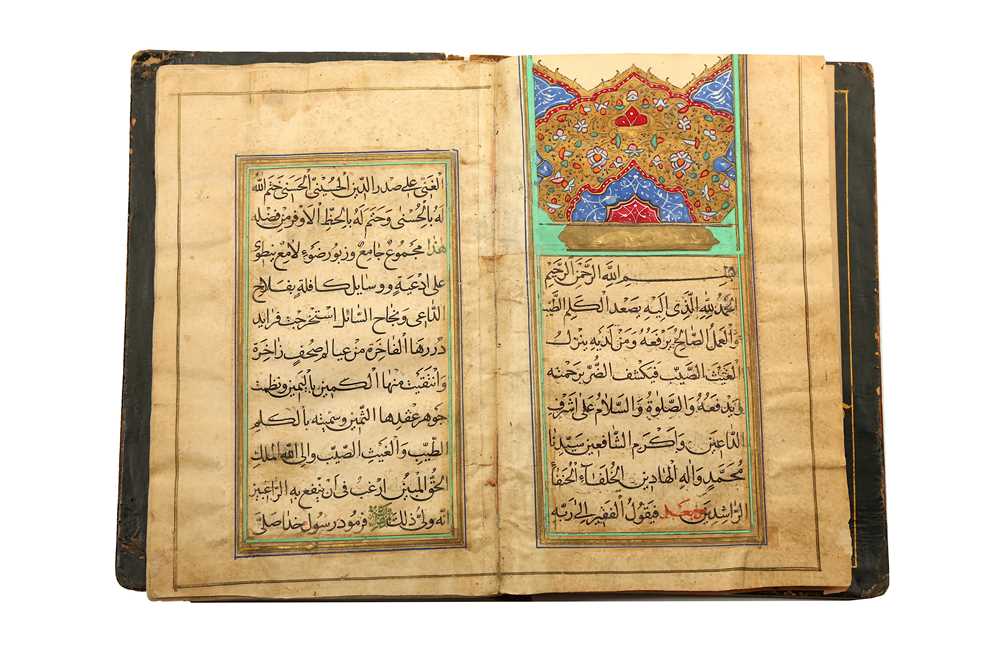 بسم الله الرحمن الرحيم
الحمد لله الذى اليه يصعد الكلم الطيب
والعمل الصالح يرفعه ومن لديه ينزل
الغيث الصيب فيكشف الضر برحمته
ويدفعه والصلوة والسلام على اشرف
الداعين واكرم الشافعين سيدنا
محمد واله الهادين الخلفاء الحنفاء
الراشدين فيقول الفقير الى ربه
الغنى على صدر الدين الحسينى الحسنى ختم الله
له بالحسنى وحتم له بالحظ الاوفر من فضله
هذا مجموع جامع وزبور ضوء لامع ينطوى
على ادعية ووسايل كافلة بفلاح
الداعى ونجاح السائل استخرجت فرايد
دررها الفاخرة من عيالم صحف زاخرة
وانتقيت منها الكمين باليمين ونظمت
جوهر عقدها الثمين وسميته بالكلم
الطيب والغيث الصيب والى الله الملك
الحق المبين ارغب فى ان ينفع به الراغبين
انه ولى ذلك فرمود رسول خدا صلى